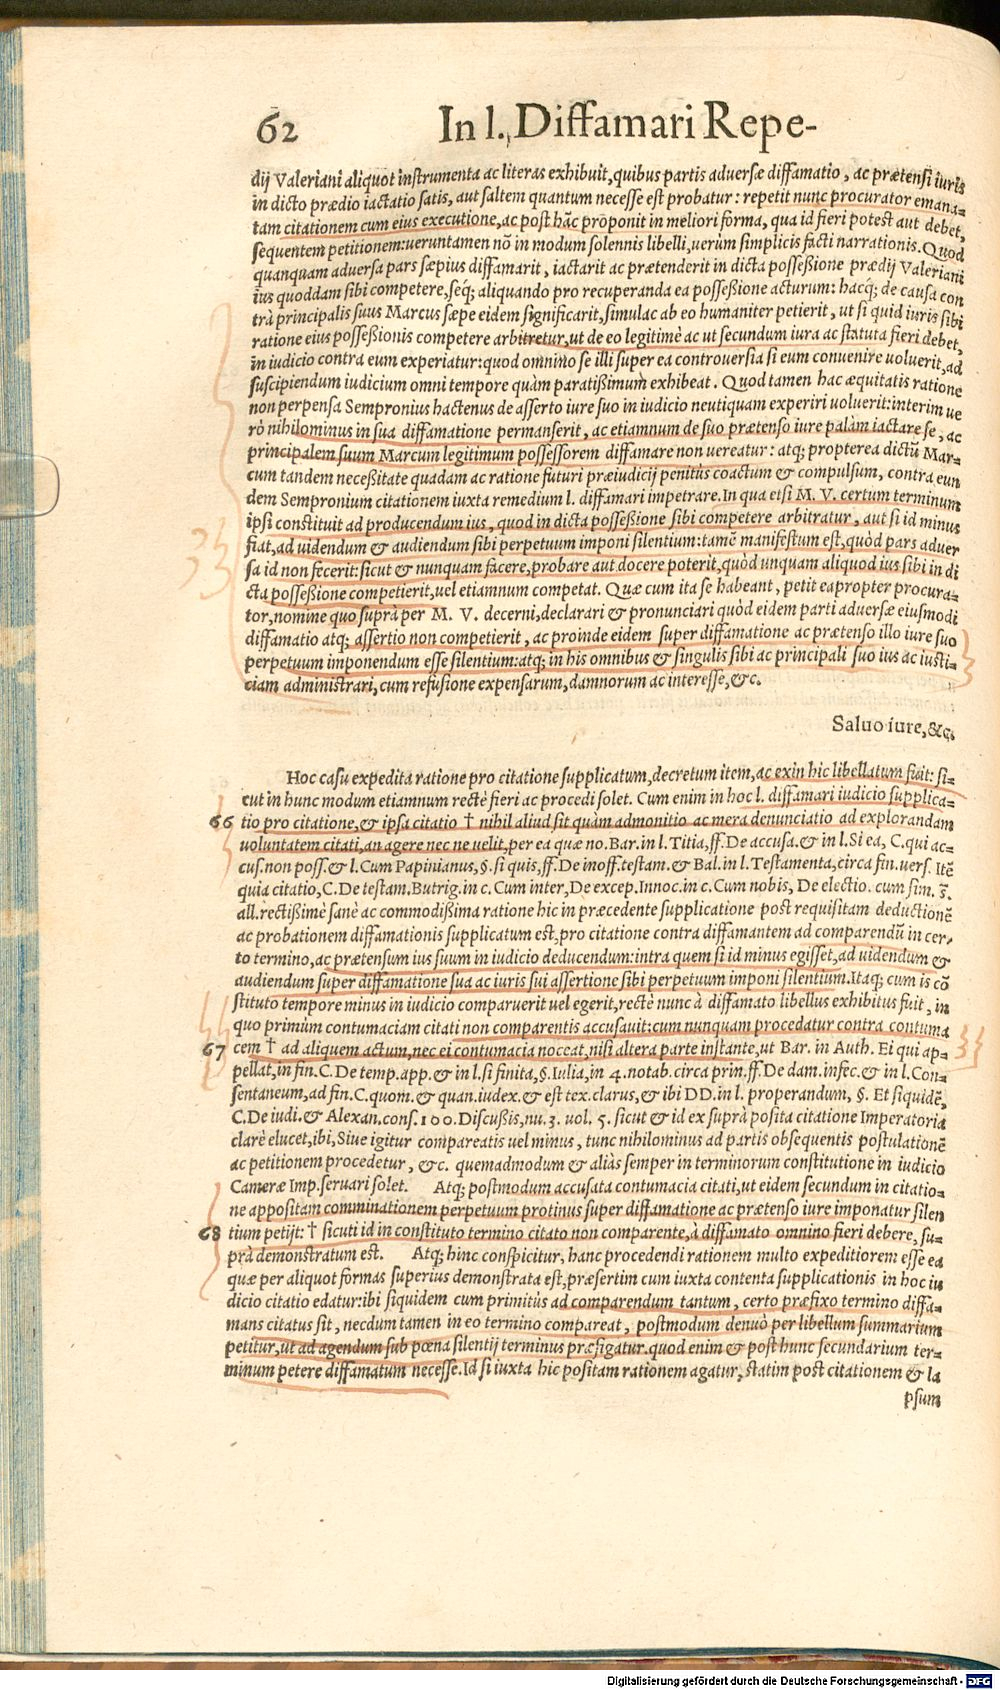 62 In l. Diffamari Repe-
dij Valeriani aliquot instrumenta ac literas exhibuit, quibus partis adversæ diffamatio, ac prætensi iuris
in dicto prædio iactatio satis, aut saltem quantum necesse est probatur: repetit nunc procurator emana-
tam citationem cum eius executione, ac post hãc proponit in meliori forma, qua id fieri potest aut debet,
sequentem petitionem: veruntamen nõ in modum solennis libelli, verùm simplicis facti narrationis. Quod
quanquam adversa pars sæpius diffamarit, iactarit ac prætenderit in dicta possessione prædij Valeriani
ius quoddam sibi competere, seq́; aliquando pro recuperanda ea possessione acturum: hacq́; de causa con
trà principalis suus Marcus sæpe eidem significarit, simulac ab eo humaniter petierit, ut si quid iuris sibi
ratione eius possessionis competere arbitretur, ut de eo legitimè ac ut secundum iura ac statuta fieri debet,
in iudicio contra eum experiatur: quod omnino se illi super ea controversia si eum convenire voluerit, ad
suscipiendum iudicium omni tempore quàm paratissimum exhibeat. Quod tamen hac æquitatis ratione
non perpensa Sempronius hactenus de asserto iure suo in iudicio neutiquam experiri voluerit: interim ve
rò nihilominus in sua diffamatione permanserit, ac etiamnum de suo prætenso iure palàm iactare se, ac
principalem suum Marcum legitimum possessorem diffamare non vereatur: atq; propterea dictũ Mar-
cum tandem necessitate quadam ac ratione futuri præiudicij penitùs coactum & compulsum, contra eun
dem Sempronium citationem iuxta remedium l. diffamari impetrare. In qua etsi M. V. certum terminum
ipsi constituit ad producendum ius, quod in dicta possessione sibi competere arbitratur, aut si id minus
fiat, ad videndum & audiendum sibi perpetuum imponi silentium: tamẽ manifestum est, quòd pars adver
sa id non fecerit: sicut & nunquam facere, probare aut docere poterit, quòd unquam aliquod ius sibi in di
cta possessione competierit, vel etiamnum competat. Quæ cum ita se habeant, petit eapropter procura-
tor, nomine quo suprà per M. V. decerni, declarari & pronunciari quòd eidem parti adversæ eiusmodi
diffamatio atq; assertio non competierit, ac proinde eidem super diffamatione ac prætenso illo iure suo
perpetuum imponendum esse silentium: atq; in his omnibus & singulis sibi ac principali suo ius ac iusti-
ciam administrari, cum refusione expensarum, damnorum ac interesse, &c.
Saluo iure, &c.
Hoc casu expedita ratione pro citatione supplicatum, decretum item, ac exin hic libellatum fuit: si-
cut in hunc modum etiamnum rectè fieri ac procedi solet. Cum enim in hoc l. diffamari iudicio supplica-
66 tio pro citatione, & ipsa citatio † nihil aliud sit quàm admonitio ac mera denunciatio ad explorandam
voluntatem citati, an agere nec ne velit, per ea quæ no. Bar. in l. Titia, ff. De accusa. & in l. Si ea, C. qui ac-
cus. non poss. & l. Cum Papinianus, §. si quis, ff. De inoff. testam. & Bal. in l. Testamenta, circa fin. vers. Itẽ
quia citatio, C. De testam. Butrig. in c. Cum inter, De excep. Innoc. in c. Cum nobis, De electio. cum sim. 3.
all. rectissimè sanè ac commodissima ratione hic in præcedente supplicatione post requisitam deductionẽ
ac probationem diffamationis supplicatum est, pro citatione contra diffamantem ad comparendũ in cer-
to termino, ac prætensum ius suum in iudicio deducendum: intra quem si id minus egisset, ad videndum &
audiendum super diffamatione sua ac iuris sui assertione sibi perpetuum imponi silentium. Itaq; cum is cõ
stituto tempore minus in iudicio comparuerit vel egerit, rectè nunc à diffamato libellus exhibitus fuit, in
quo primùm contumaciam citati non comparentis accusauit: cum nunquam procedatur contra contuma
67 cem † ad aliquem actum, nec ei contumacia noceat, nisi altera parte instante, ut Bar. in Auth. Ei qui ap-
pellat, in fin. C. De temp. app. & in l. si finita, §. Iulia, in 4. notab. circa prin. ff. De dam. infec. & in l. Con-
sentaneum, ad fin. C. quom. & quan. iudex. & est tex. clarus, & ibi DD. in l. properandum, §. Et siquidẽ,
C. De iudi. & Alexan. cons. 100. Discussis, nu. 3. vol. 5. sicut & id ex suprà posita citatione Imperatoria
clarè elucet, ibi, Sive igitur compareatis vel minus, tunc nihilominus ad partis obsequentis postulationẽ
ac petitionem procedetur, &c. quemadmodum & aliàs semper in terminorum constitutione in iudicio
Cameræ Imp. servari solet. Atq; postmodum accusata contumacia citati, ut eidem secundum in citatio-
ne appositam comminationem perpetuum protinus super diffamatione ac prætenso iure imponatur silen
68 tium petijt: † sicuti id in constituto termino citato non comparente, à diffamato omnino fieri debere, su-
prà demonstratum est. Atq; hinc conspicitur, hanc procedendi rationem multo expeditiorem esse ea
quæ per aliquot formas superius demonstrata est, præsertim cum iuxta contenta supplicationis in hoc iu
dicio citatio edatur: ibi siquidem cum primitùs ad comparendum tantum, certo præfixo termino diffa-
mans citatus sit, necdum tamen in eo termino compareat, postmodum denuò per libellum summarium
petitur, ut ad agendum sub pœna silentij terminus præfigatur. quod enim & post hunc secundarium ter-
minum petere diffamatum necesse. Id si iuxta hic positam rationem agatur, statim post citationem & la
psum
Digitalisierung gefördert durch die Deutsche Forschungsgemeinschaft - DFG